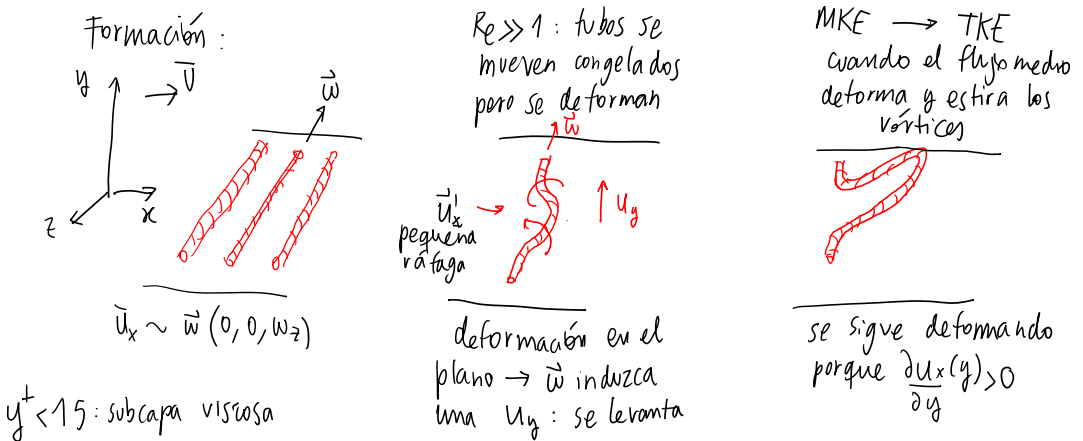 Formación:
y
U̅
z
x
w⃗
u̅ₓ ~ w⃗ (0, 0, wz)
y⁺<15: subcapa viscosa
Re>>1: tubos se
mueven congelados
pero se deforman
w⃗
u⃗'ₓ →
pequeña
ráfaga
↑ uy
deformación en el
plano → w⃗ induzca
una uy: se levanta
MKE → TKE
cuando el flujo medio
deforma y estira los
vórtices
se sigue deformando
porque ∂uₓ(y)/∂y >0